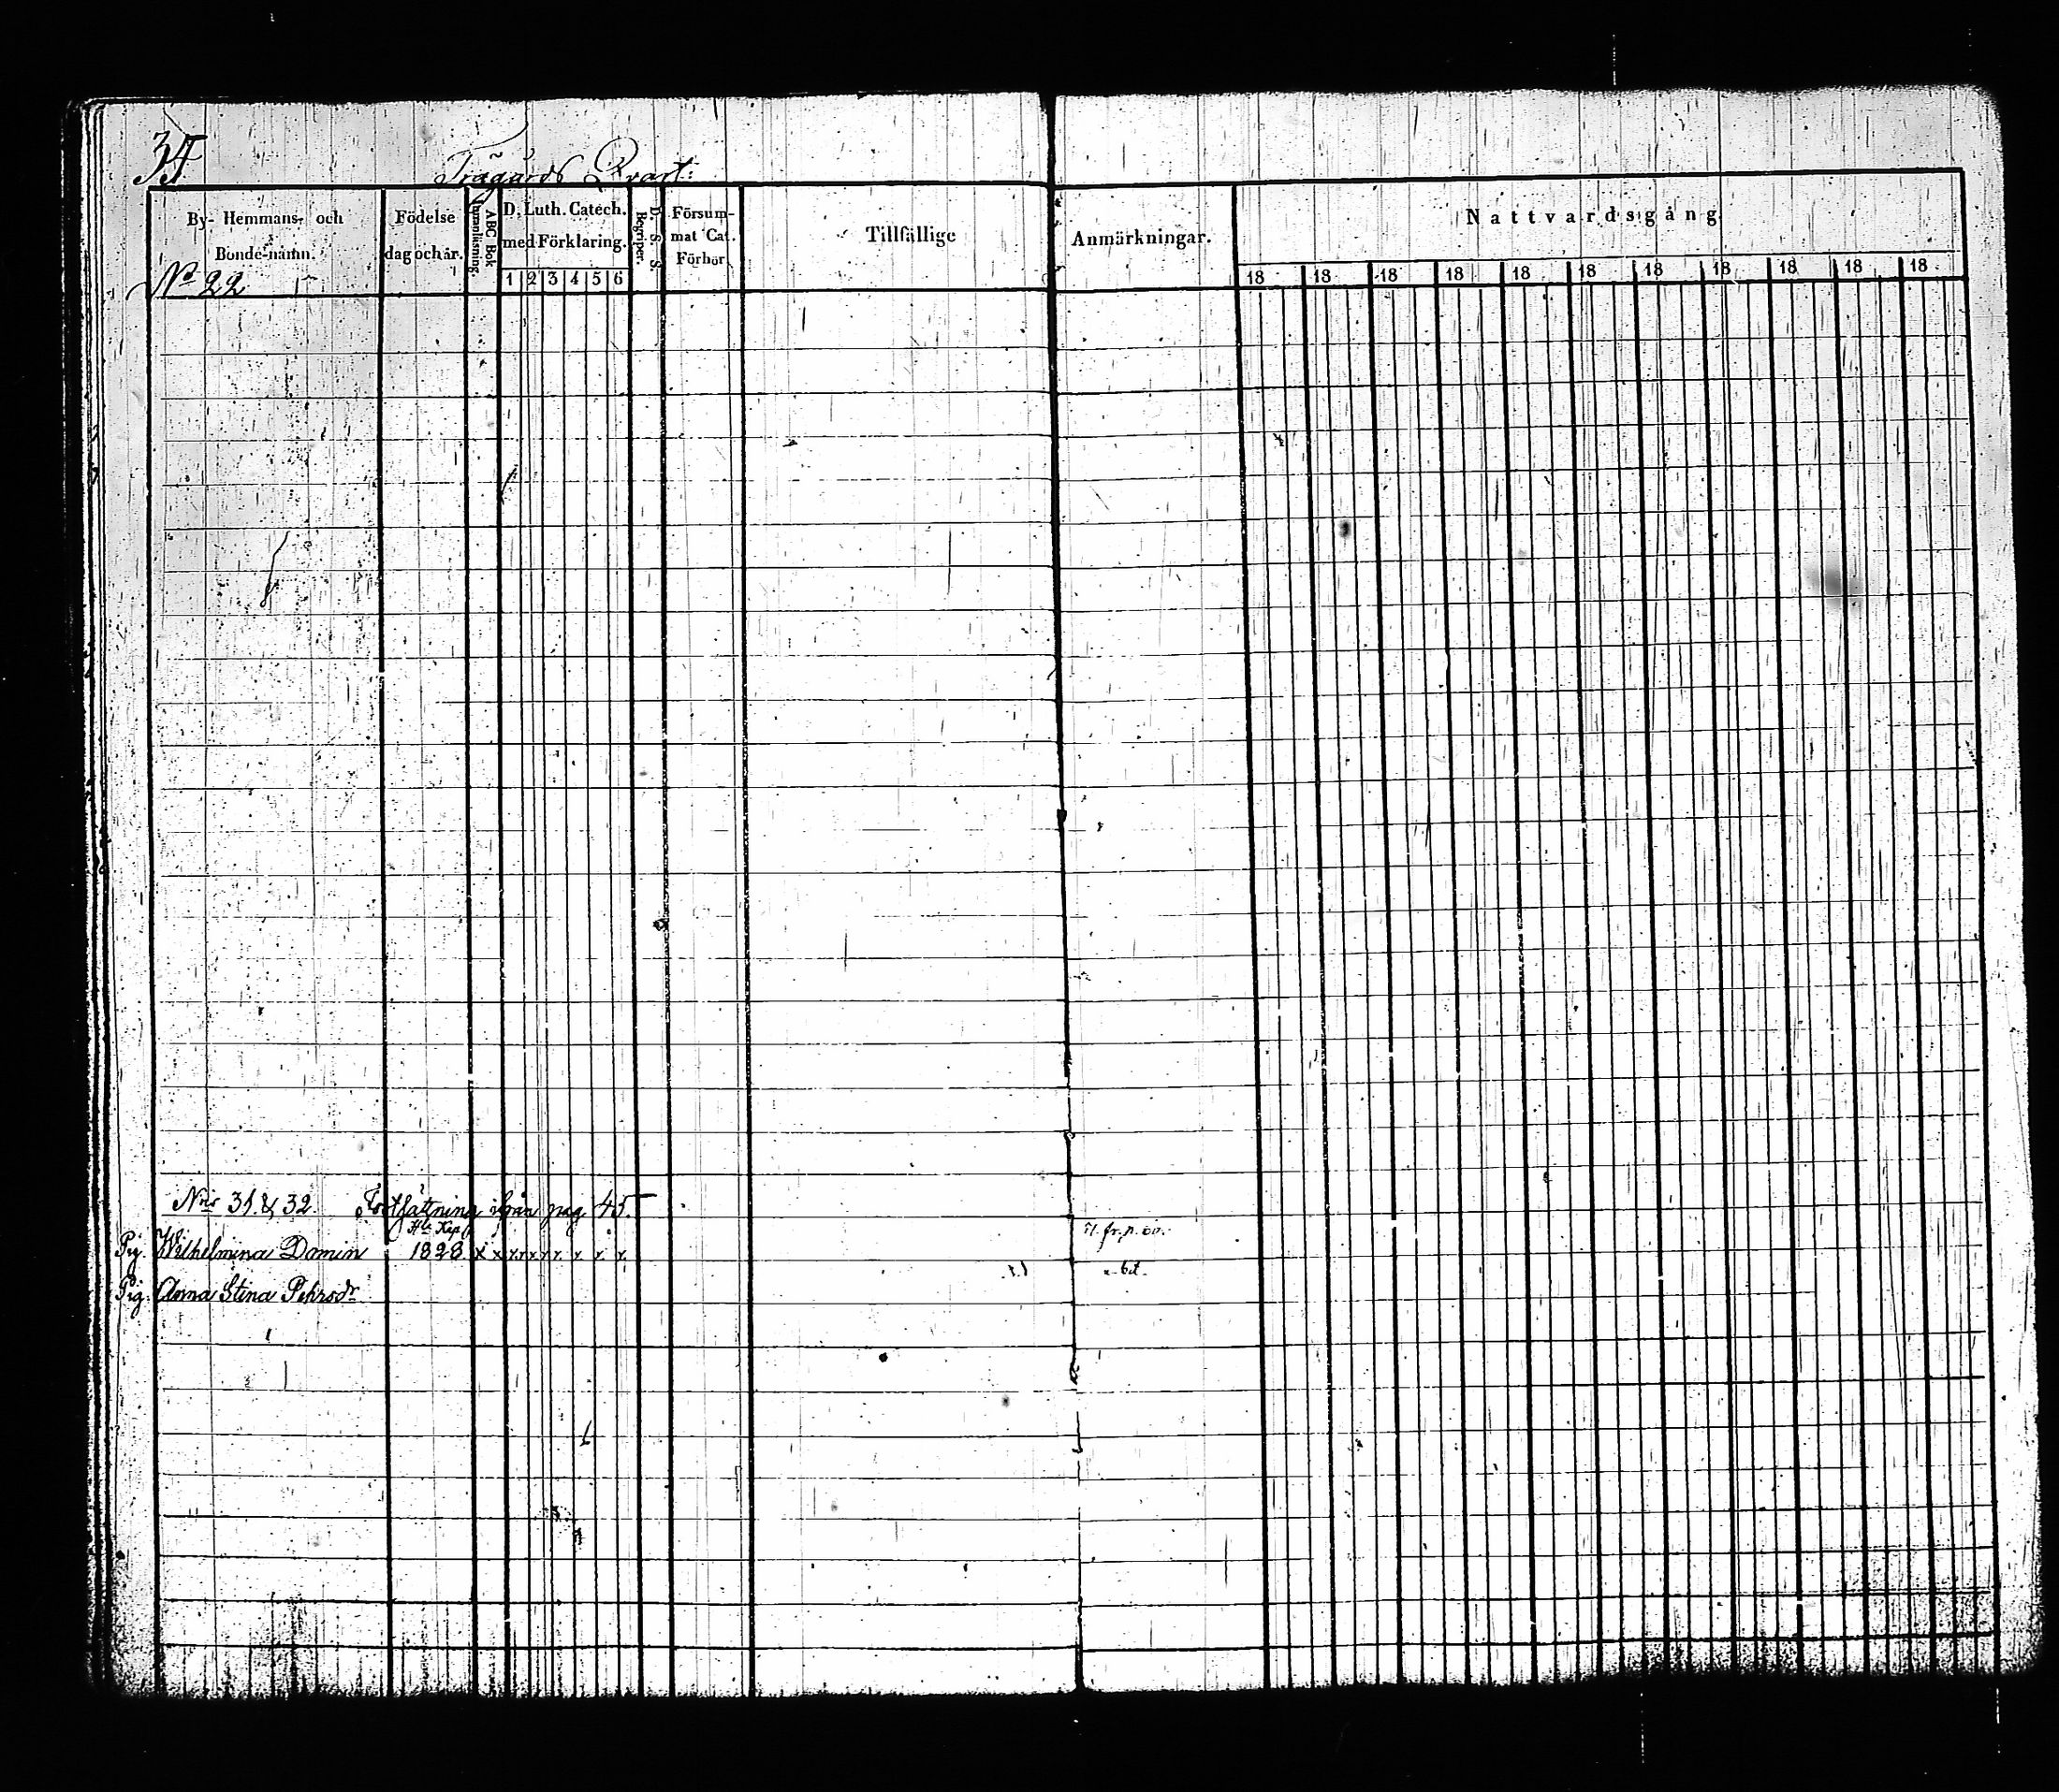 35.
Trägårds Qvart:
By- Hemmans- och Bonde-namn.
Födelse dag och år.
ABC Bok Innanläsning.
D. Luth. Catech. med Förklaring.
1 2 3 4 5 6
D. S. S. Begriper.
Försum- mat Cat. Förhör
Tillfällige
Anmärkningar.
Nattvardsgång
18 18 18 18 18 18 18 18 18 18 18
No 22
Nris 31 & 32. Fortsättning ifrån pag 45.
Pig. Wilhelmina Domin 1828 x x x x x x x x x x
Pig. Anna Stina Pehrsdr